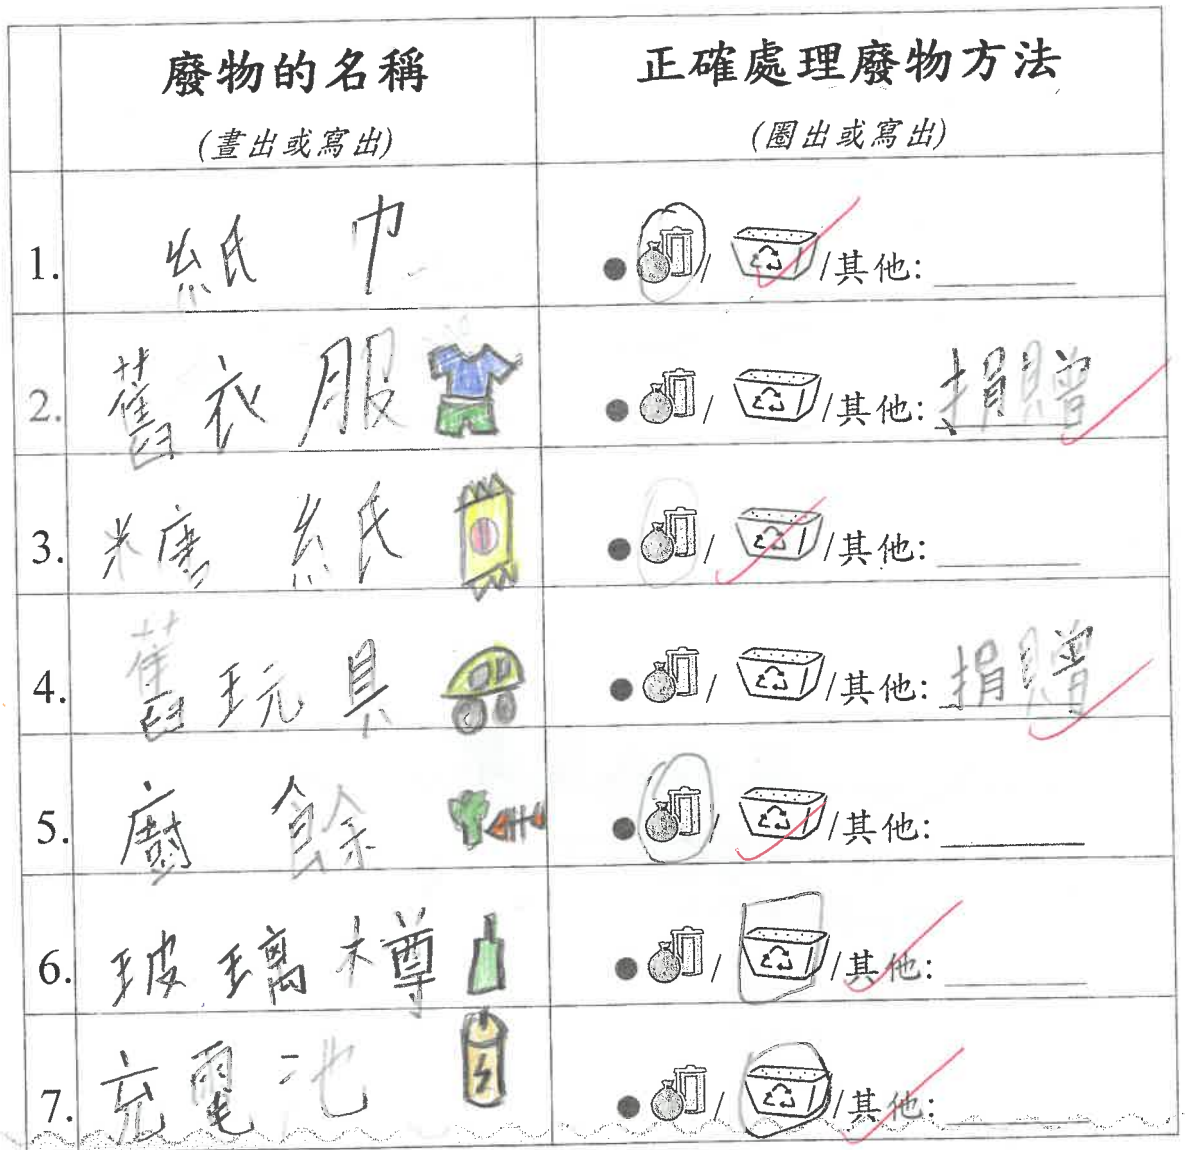 廢物的名稱 正確處理廢物方法
(畫出或寫出) (圈出或寫出)
1. 紙巾 ● / /其他:
2. 舊衣服 ● / /其他: 捐贈
3. 糖紙 ● / /其他:
4. 舊玩具 ● / /其他: 捐贈
5. 廚餘 ● / /其他:
6. 玻璃樽 ● / /其他:
7. 充電池 ● / /其他: